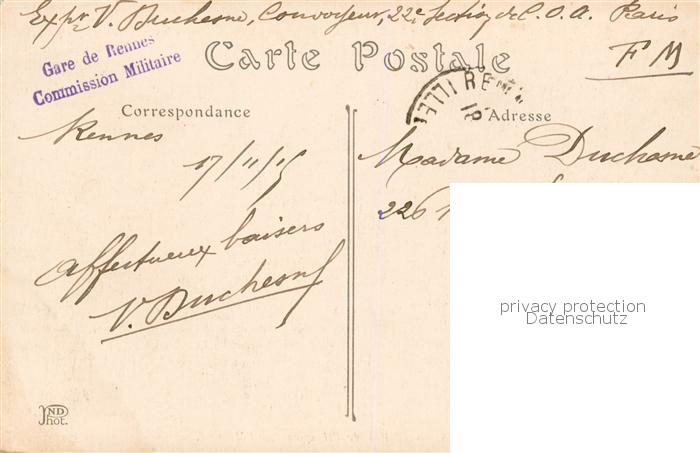 Expr V. Duchesne, Convoyeur, 22e Section de C.O.A. Paris
Gare de Rennes
Commission Militaire
Carte Postale
F M
Correspondance
Adresse
Rennes
17/11/15
affectueux baisers
V. Duchesne
Madame Duchesne
226
privacy protection
Datenschutz
ND
Phot.